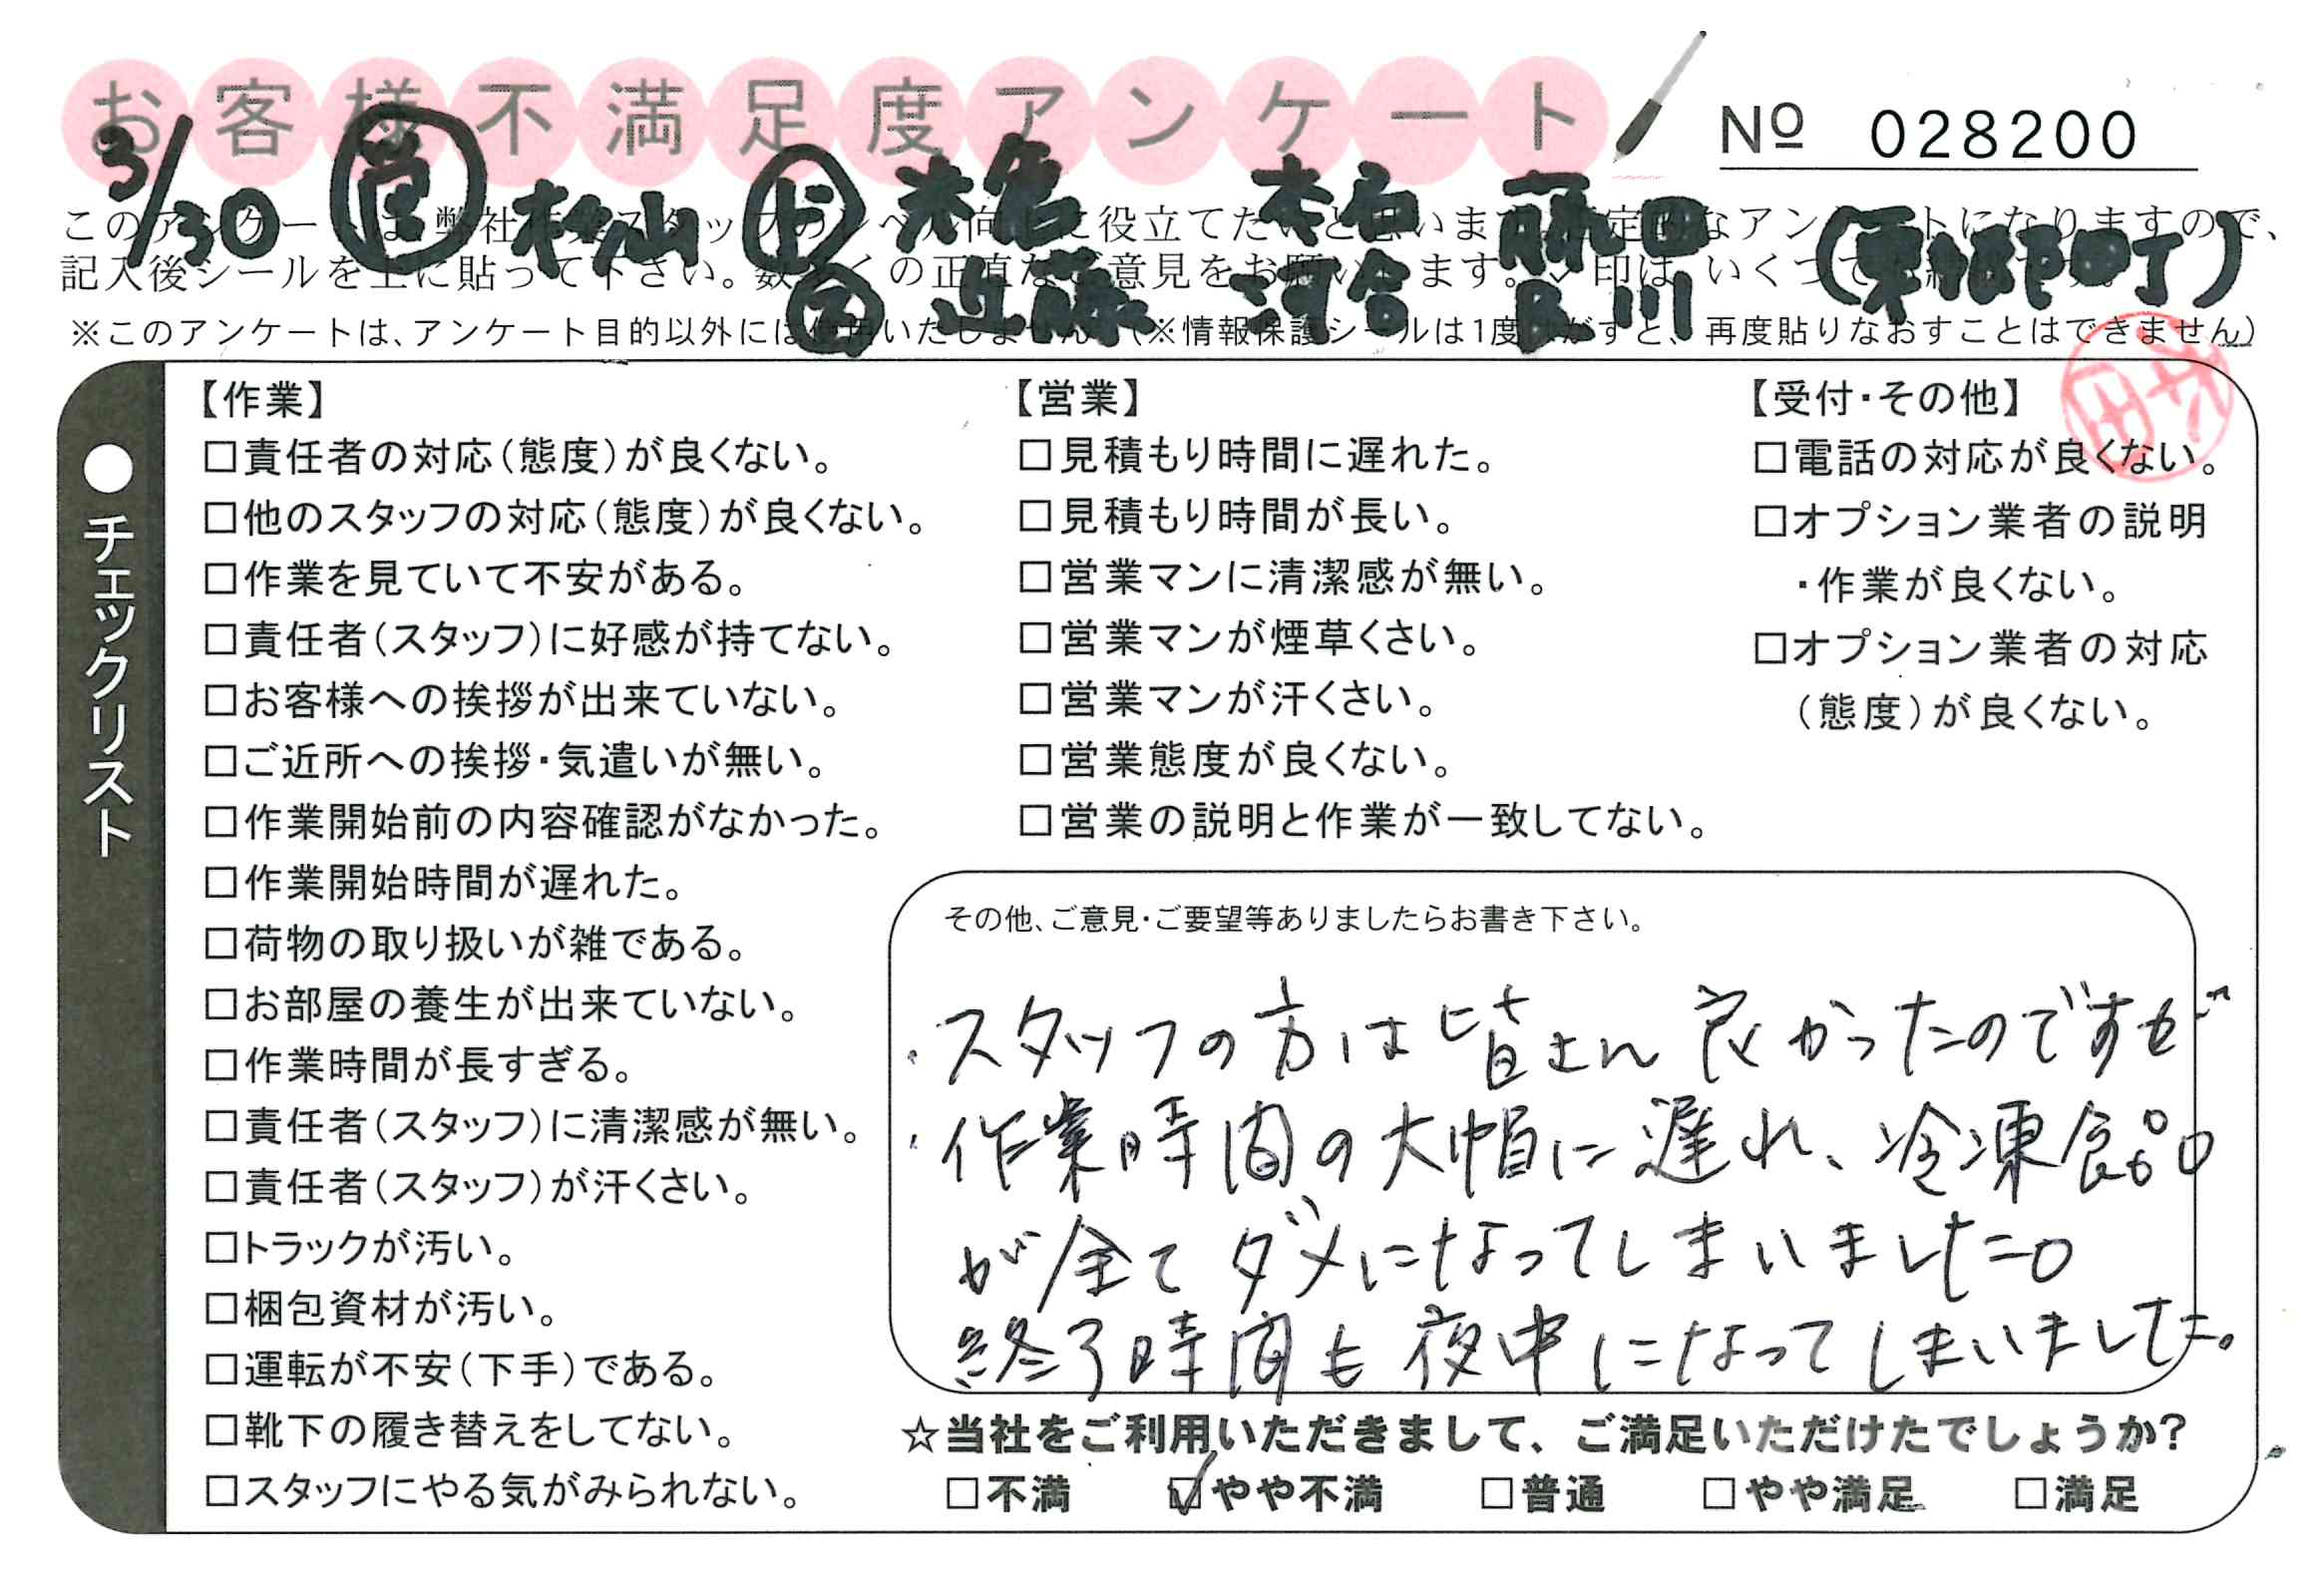 お客様不満足度アンケート
№ 028200
3/30 営 松山 ド 椎名 本名 藤田 (東村山市町)
近藤 河合 長川
このアンケートは、弊社作業スタッフのレベル向上に役立てたいと思います。否定的なアンケートになりますので、
記入後シールを上に貼って下さい。数多くの正直なご意見をお願いします。✓印は、いくつでも結構です。
※このアンケートは、アンケート目的以外には使用いたしません。(※情報保護シールは1度はがすと、再度貼りなおすことはできません)
●チェックリスト
【作業】
□責任者の対応(態度)が良くない。
□他のスタッフの対応(態度)が良くない。
□作業を見ていて不安がある。
□責任者(スタッフ)に好感が持てない。
□お客様への挨拶が出来ていない。
□ご近所への挨拶・気遣いが無い。
□作業開始前の内容確認がなかった。
□作業開始時間が遅れた。
□荷物の取り扱いが雑である。
□お部屋の養生が出来ていない。
□作業時間が長すぎる。
□責任者(スタッフ)に清潔感が無い。
□責任者(スタッフ)が汗くさい。
□トラックが汚い。
□梱包資材が汚い。
□運転が不安(下手)である。
□靴下の履き替えをしてない。
□スタッフにやる気がみられない。
【営業】
□見積もり時間に遅れた。
□見積もり時間が長い。
□営業マンに清潔感が無い。
□営業マンが煙草くさい。
□営業マンが汗くさい。
□営業態度が良くない。
□営業の説明と作業が一致してない。
【受付・その他】
□電話の対応が良くない。
□オプション業者の説明
・作業が良くない。
□オプション業者の対応
(態度)が良くない。
その他、ご意見・ご要望等ありましたらお書き下さい。
・スタッフの方は皆さん良かったのですが
・作業時間の大幅に遅れ、冷凍食品
が全てダメになってしまいました。
終了時間も夜中になってしまいました。
☆当社をご利用いただきまして、ご満足いただけたでしょうか?
□不満 ☑やや不満 □普通 □やや満足 □満足